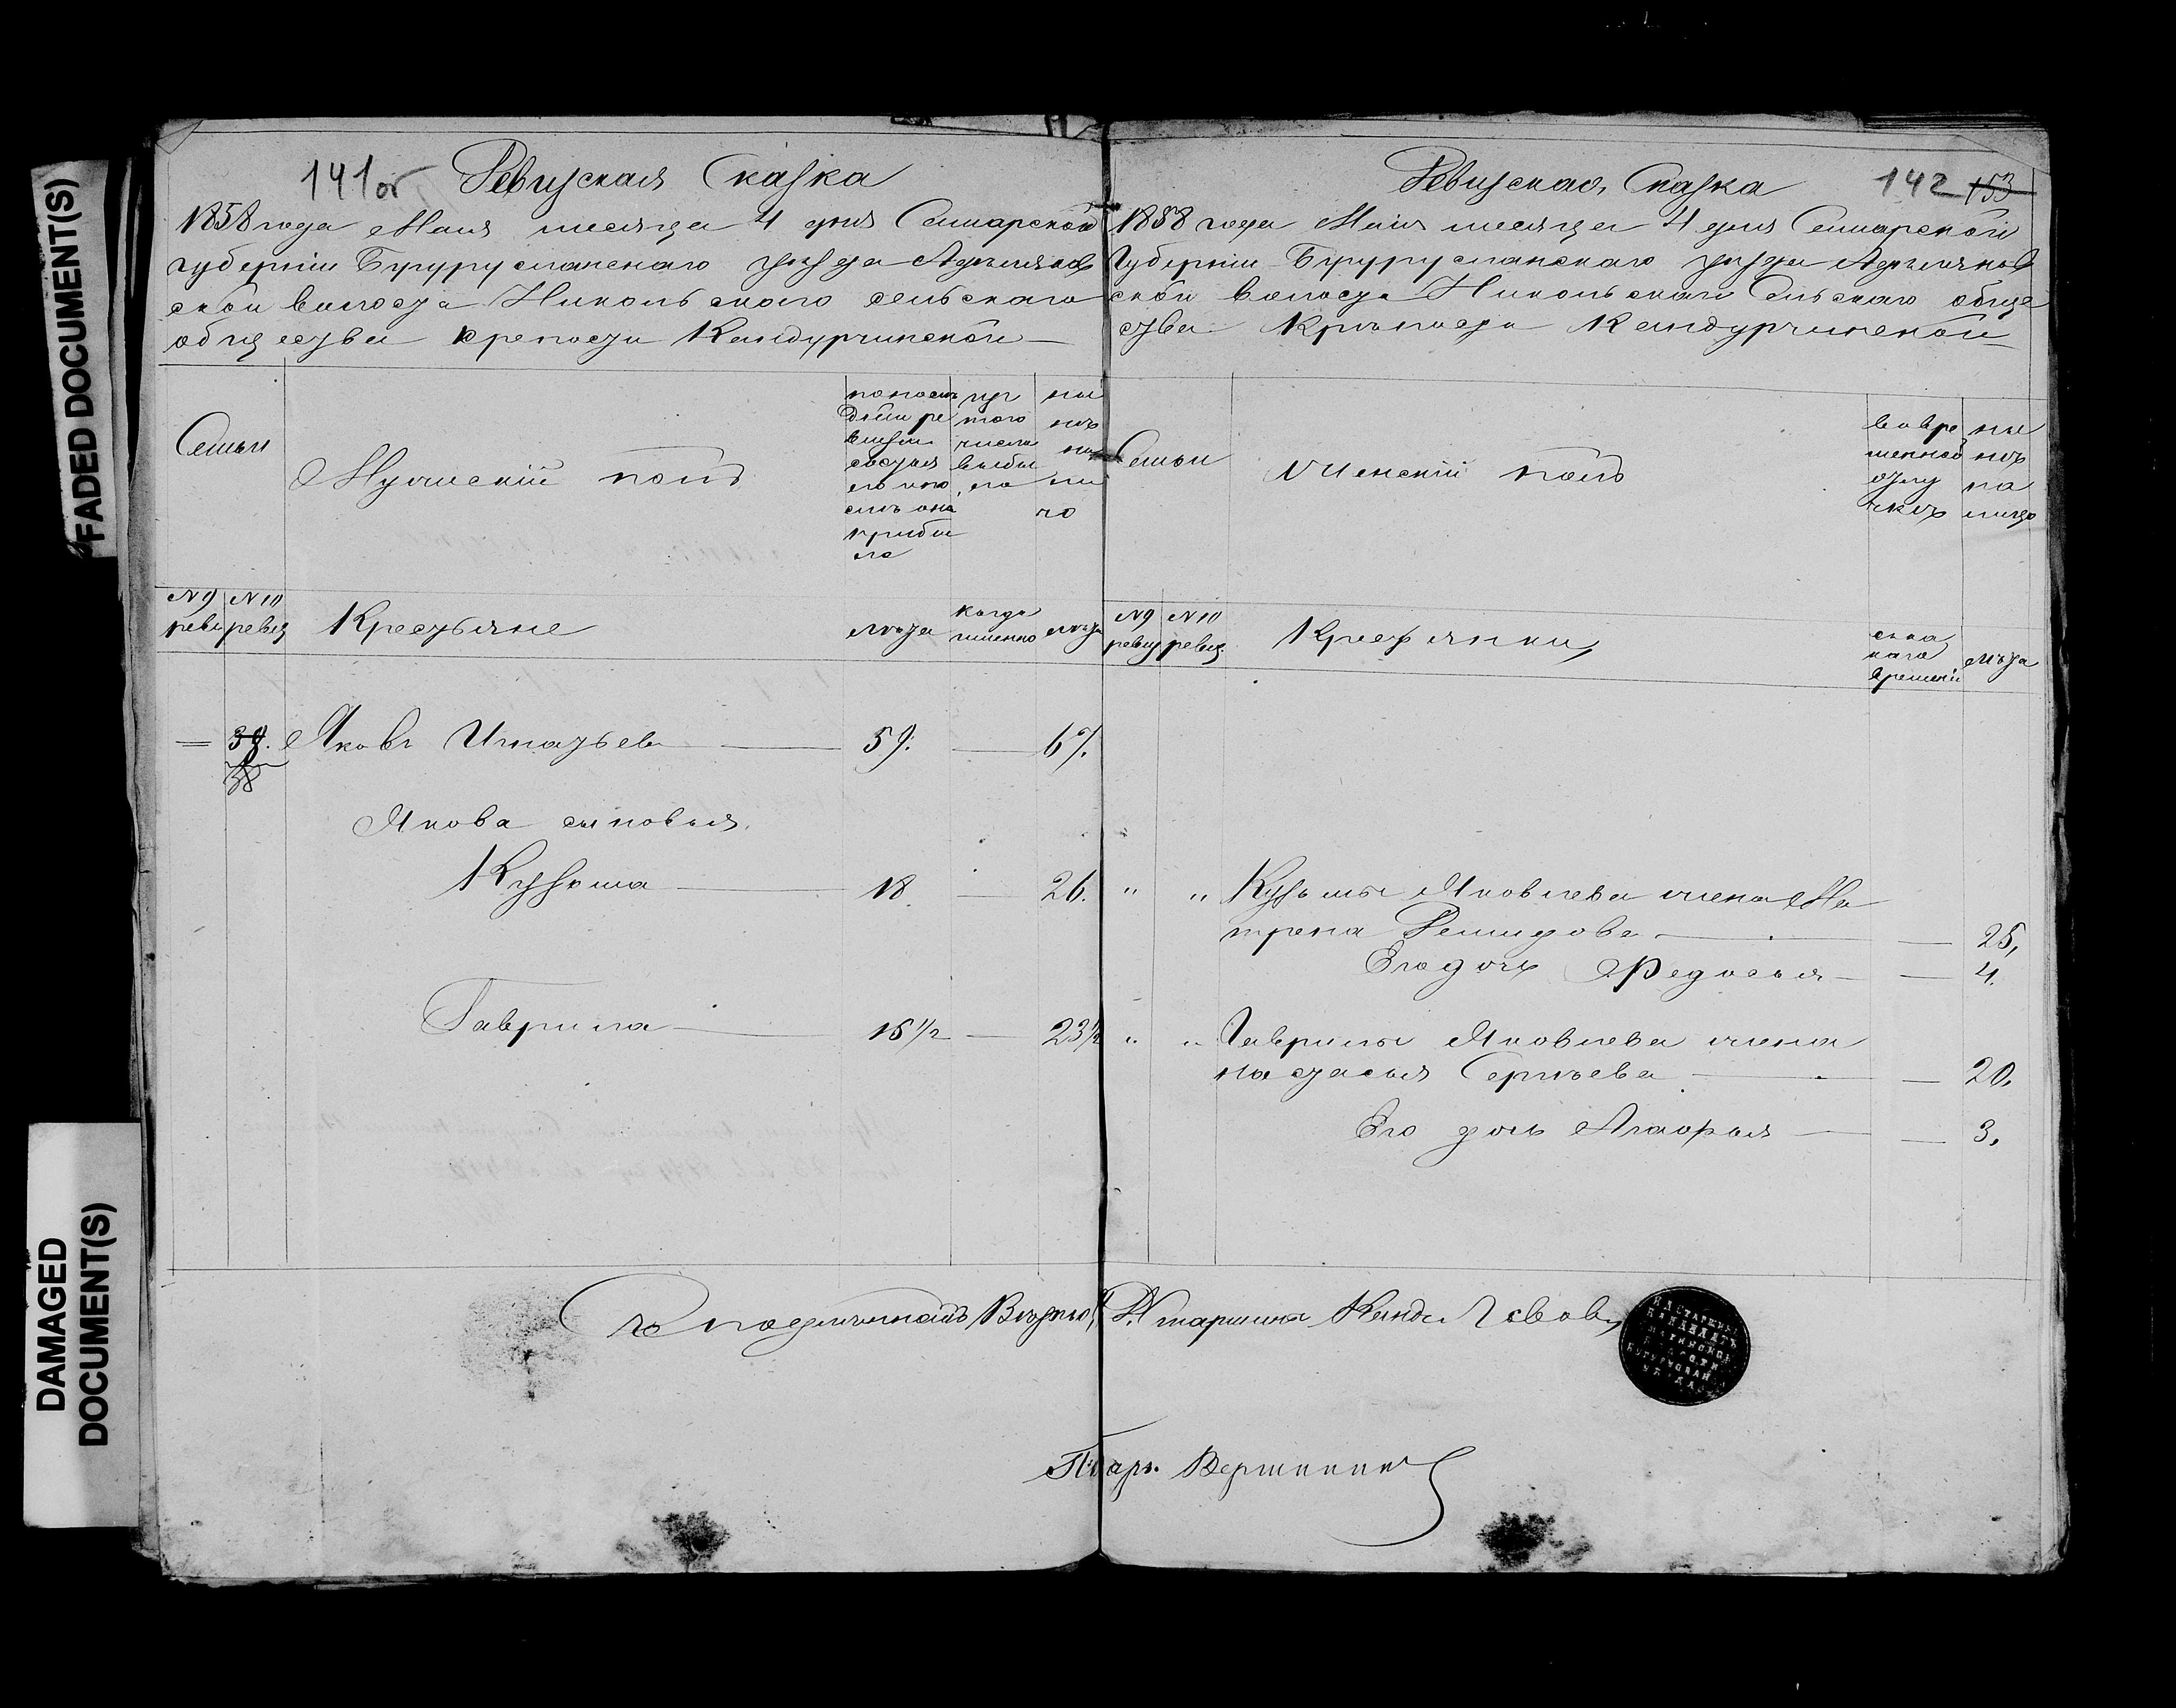 FADED DOCUMENT(S)
DAMAGED
DOCUMENT(S)
141об Ревизская Сказка
1858 года Мая месяца 4 дня Самарской
губернии Бугурусланскаго уезда
ской волости Никольскаго сельскаго
общества крепости Кандурчинской
Семьи
Мужеский полъ
по послѣ
дней ре
визии
состоя
ло и по
слѣ она
прибы
ло
изъ
того
числа
выбы
ло
ны
нѣ
на
ли
цо
№ 9 ревиз
№ 10 ревиз
Крестьяне
лѣта
когда
именно
лѣта
38. Яковъ Игнатьевъ 59. 67.
Якова сыновья
Кузьма 18. 26.
Гаврила 15 1/2 23 1/2
Ревизская Сказка 142 153
1858 года Мая месяца 4 дня Самарской
Губернии Бугурусланскаго уезда
ской волости Никольскаго Сельскаго обще
ства Крѣпости Кандурчинской
Семьи
Женский полъ
во вре
менной
отлу
чкѣ
ны
нѣ
на
лицо
№ 9 ревиз
№ 10 ревиз.
Крестьянки
съ ка
каго
времени
лѣта
" " Кузьмы Яковлева жена Ма
трена Демидова 25,
Его дочь Федосья 4.
" " Гаврилы Яковлева жена
Настасья Сергѣева 20.
Его дочь Агафья 3.
старшина
Писарь Вершинин